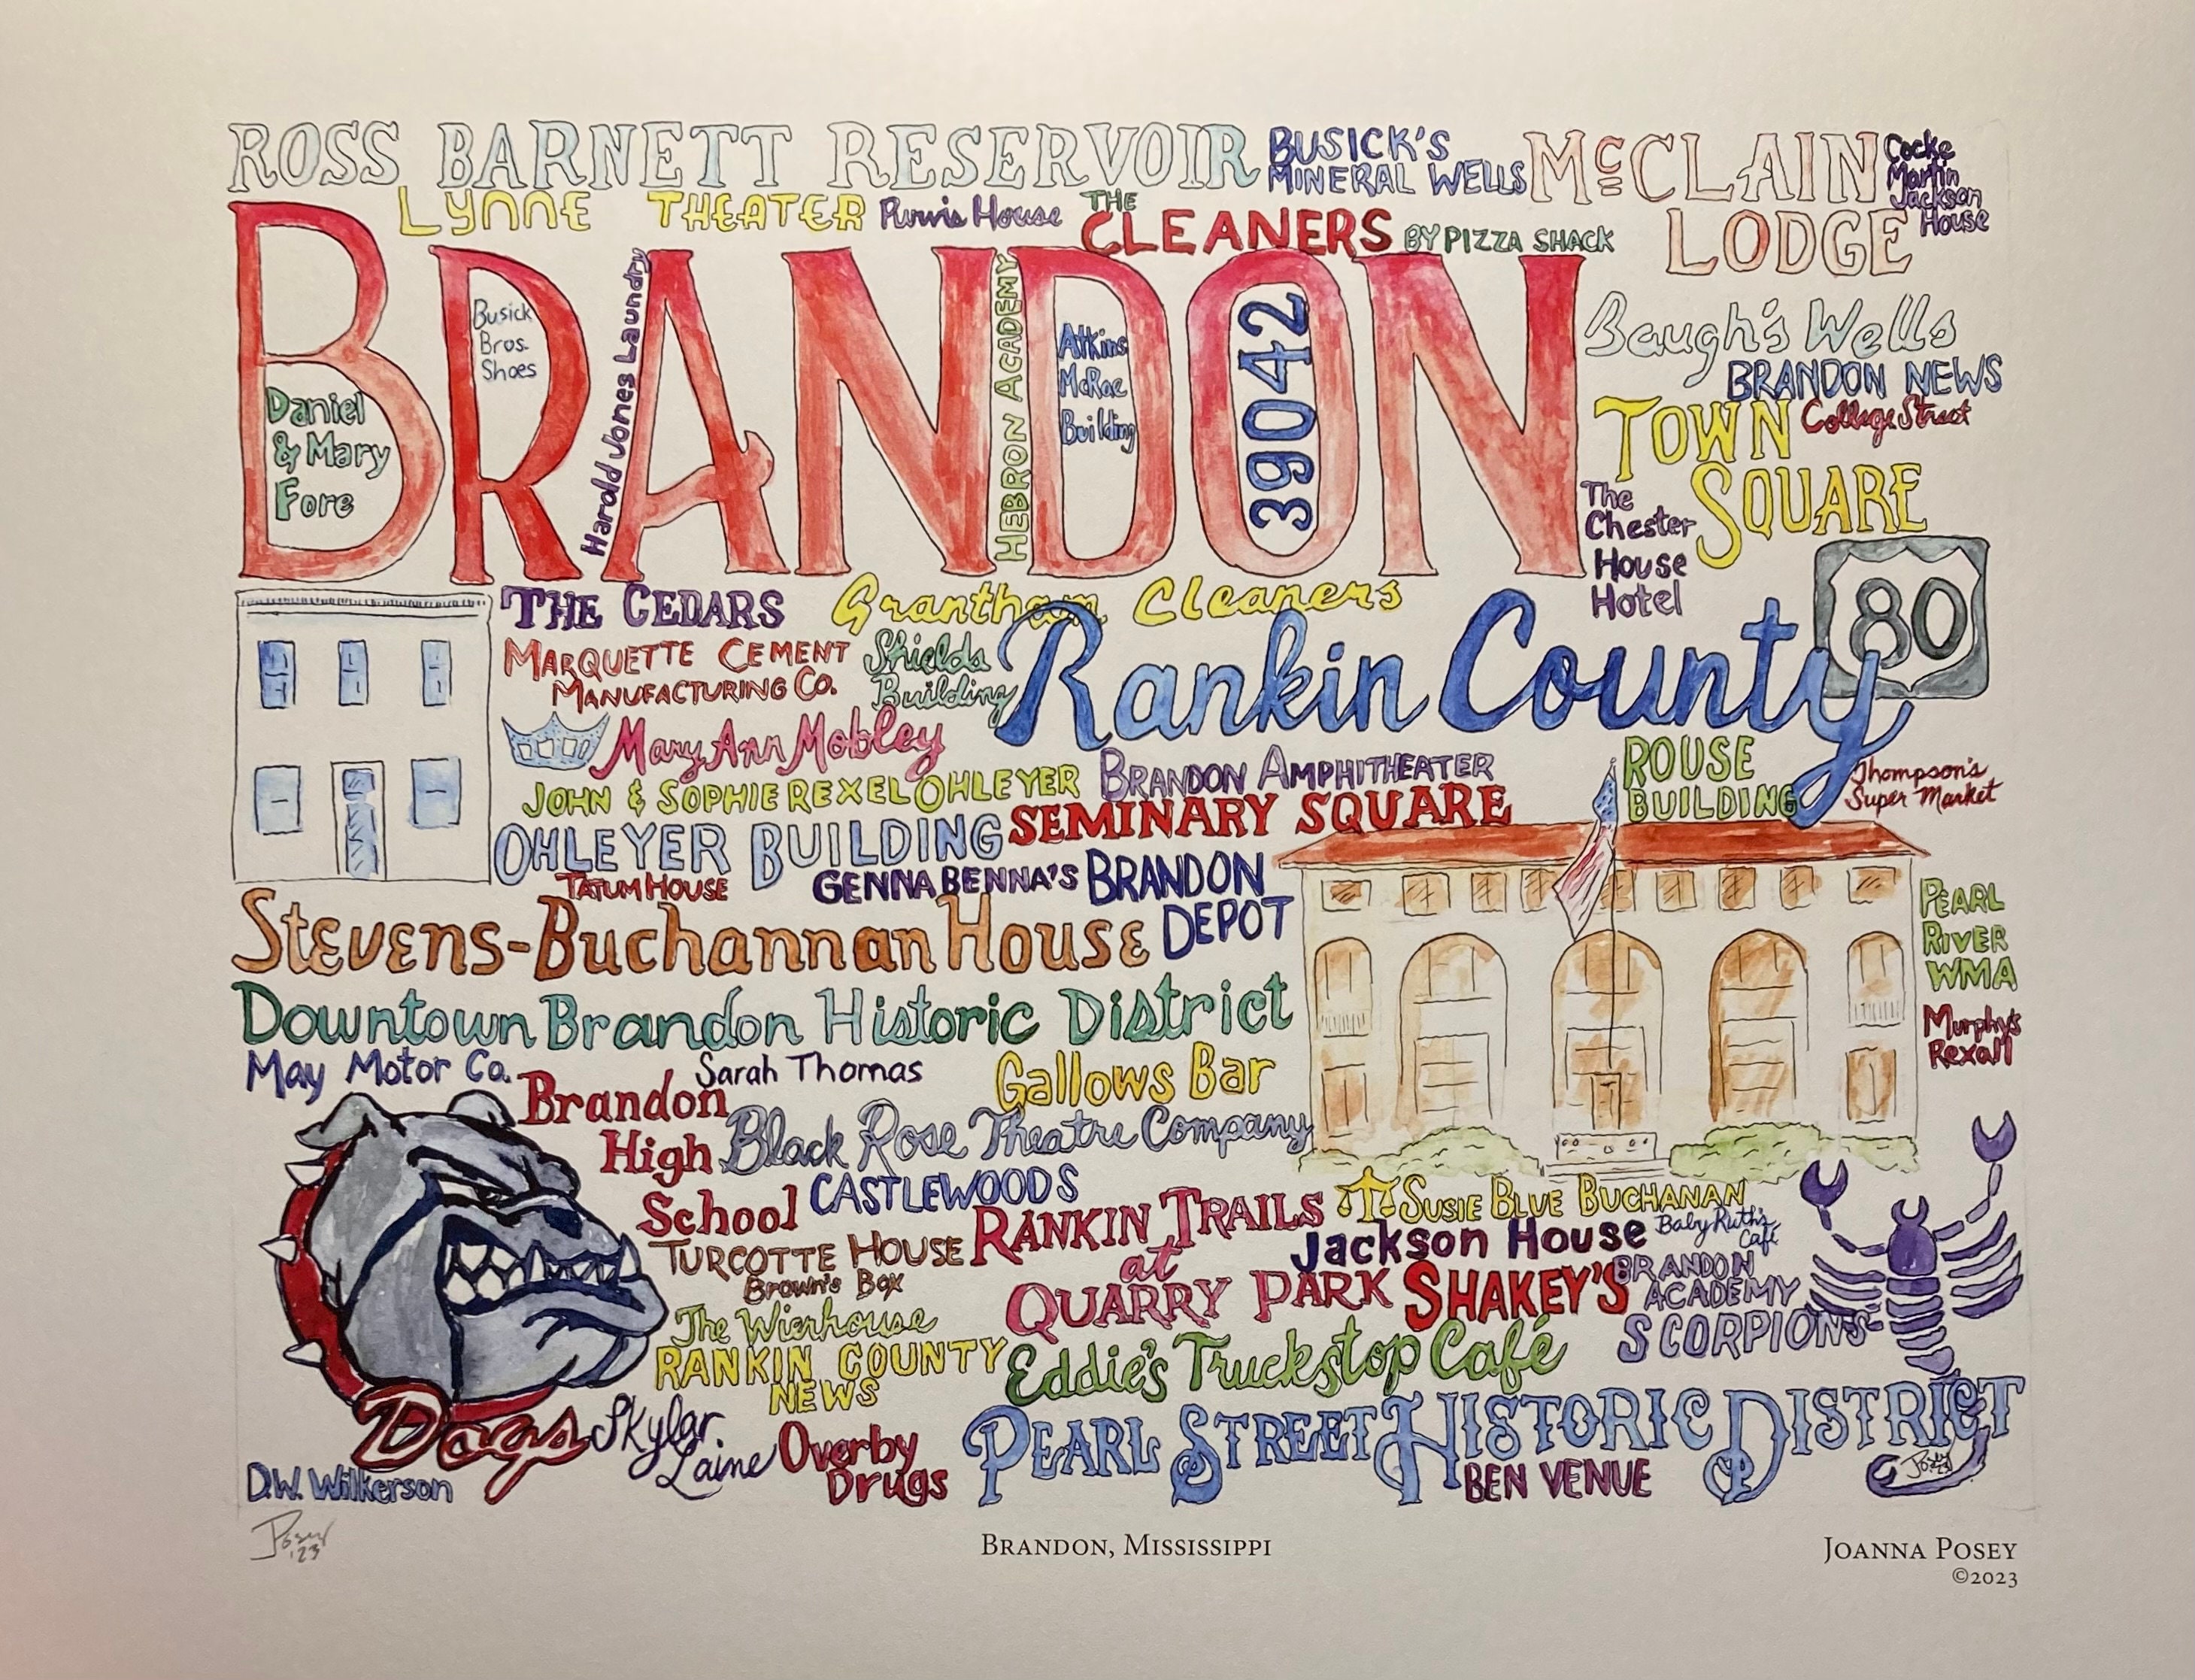 ROSS BARNETT RESERVOIR
BUSICK'S
MINERAL WELLS
McCLAIN
LODGE
Cocke
Martin
Jackson
House
LYNNE THEATER
Purvis House
THE
CLEANERS
BY PIZZA SHACK
BRANDON
Daniel
& Mary
Fore
Busick
Bros.
Shoes
Harold Jones Laundry
HEBRON ACADEMY
Atkins
McRae
Building
39042
Baugh's Wells
BRANDON NEWS
TOWN
SQUARE
College Street
The
Chester
House
Hotel
80
THE CEDARS
Grantham Cleaners
MARQUETTE CEMENT
MANUFACTURING CO.
Shields
Building
Rankin County
Mary Ann Mobley
JOHN & SOPHIE REXEL OHLEYER
BRANDON AMPHITHEATER
ROUSE
BUILDING
Thompson's
Super Market
OHLEYER BUILDING
SEMINARY SQUARE
TATUM HOUSE
GENNA BENNA'S
BRANDON
DEPOT
Stevens-Buchannan House
PEARL
RIVER
WMA
Downtown Brandon Historic District
Murphy's
Rexall
May Motor Co.
Sarah Thomas
Gallows Bar
Brandon
High
School
Black Rose Theatre Company
CASTLEWOODS
RANKIN TRAILS
at
QUARRY PARK
SUSIE BLUE BUCHANAN
Jackson House
Baby Ruth's
Café
TURCOTTE HOUSE
Brown's Box
SHAKEY'S
BRANDON
ACADEMY
SCORPIONS
The Wierhouse
RANKIN COUNTY
NEWS
Eddie's Truckstop Café
Dogs
Skylar
Laine
Overby
Drugs
PEARL STREET HISTORIC DISTRICT
BEN VENUE
D.W. Wilkerson
Posey
'23
Posey
'23
BRANDON, MISSISSIPPI
JOANNA POSEY
©2023